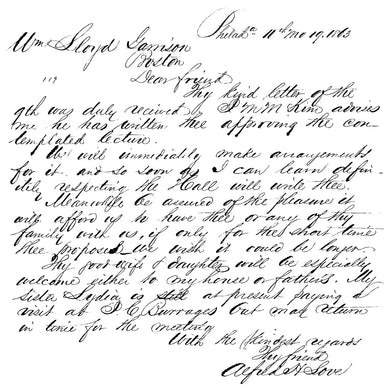 Philada 11th Mo 19, 1863
Wm Lloyd Garrison
Boston
Dear friend
Thy kind letter of the
9th was duly received & J M McKim advises
me he has written thee approving the con-
templated lecture.
We will immediately make arrangements
for it. and so soon as I can learn defin-
itely respecting the Hall will write thee.
Meanwhile be assured of the pleasure it
will afford us to have thee or any of thy
family with us, if only for the short time
thee proposes. We wish it could be longer.
Thy good wife & daughter will be especially
welcome either to my house or father's. My
sister Lydia is still at present paying a
visit at J. C. Burrages but may return
in time for the meeting
With the kindest regards
Thy friend
Alfred H Love